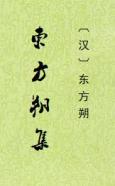 〔汉〕东方朔
东方朔集